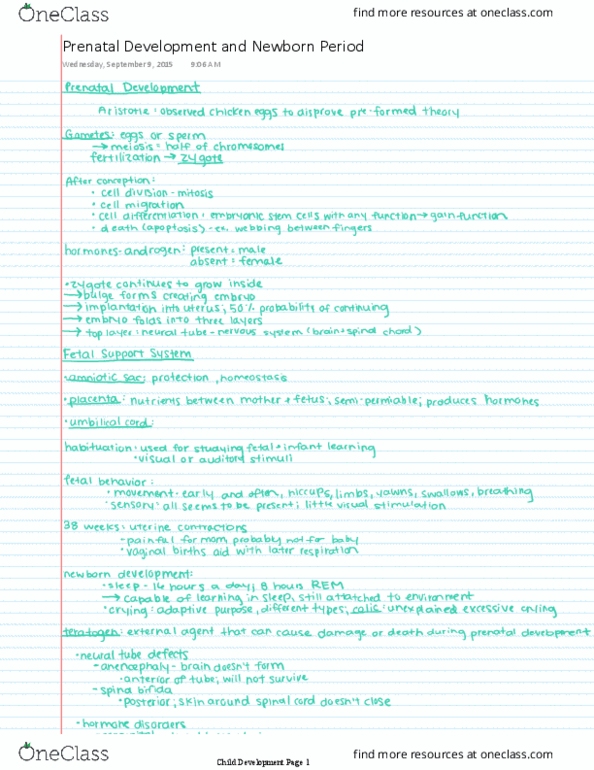 OneClass
find more resources at oneclass.com
Prenatal Development and Newborn Period
Wednesday, September 9, 2015 9:06 AM
Prenatal Development
Aristotle: observed chicken eggs to disprove pre-formed theory
Gametes: eggs or sperm
→ meiosis: half of chromosomes
fertilization → zygote
After conception:
• cell division - mitosis
• cell migration
• cell differentiation: embryonic stem cells with any function → gain function
• death (apoptosis) - ex. webbing between fingers
hormones-androgen: present = male
absent = female
• zygote continues to grow inside
→ bulge forms creating embryo
→ implantation into uterus; 50% probability of continuing
→ embryo folds into three layers
→ top layer: neural tube - nervous system (brain + spinal chord)
Fetal Support System
• amniotic sac: protection, homeostasis
• placenta: nutrients between mother + fetus; semi-permiable; produces hormones
• umbilical cord:
habituation: used for studying fetal + infant learning
• visual or auditory stimuli
fetal behavior:
• movement - early and often, hiccups, limbs, yawns, swallows, breathing
• sensory: all seems to be present; little visual stimulation
38 weeks: uterine contractions
- painful for mom, probably not for baby
• vaginal births aid with later respiration
newborn development:
• sleep - 16 hours a day; 8 hours REM
→ capable of learning in sleep, still attatched to environment
• crying: adaptive purpose, different types; colic: unexplained excessive crying
teratogen: external agent that can cause damage or death during prenatal development
• neural tube defects
- anencephaly - brain doesn't form
• anterior of tube; will not survive
- spina bifida
• posterior; skin around spinal cord doesn't close
• hormone disorders
OneClass
Child Development Page 1
find more resources at oneclass.com